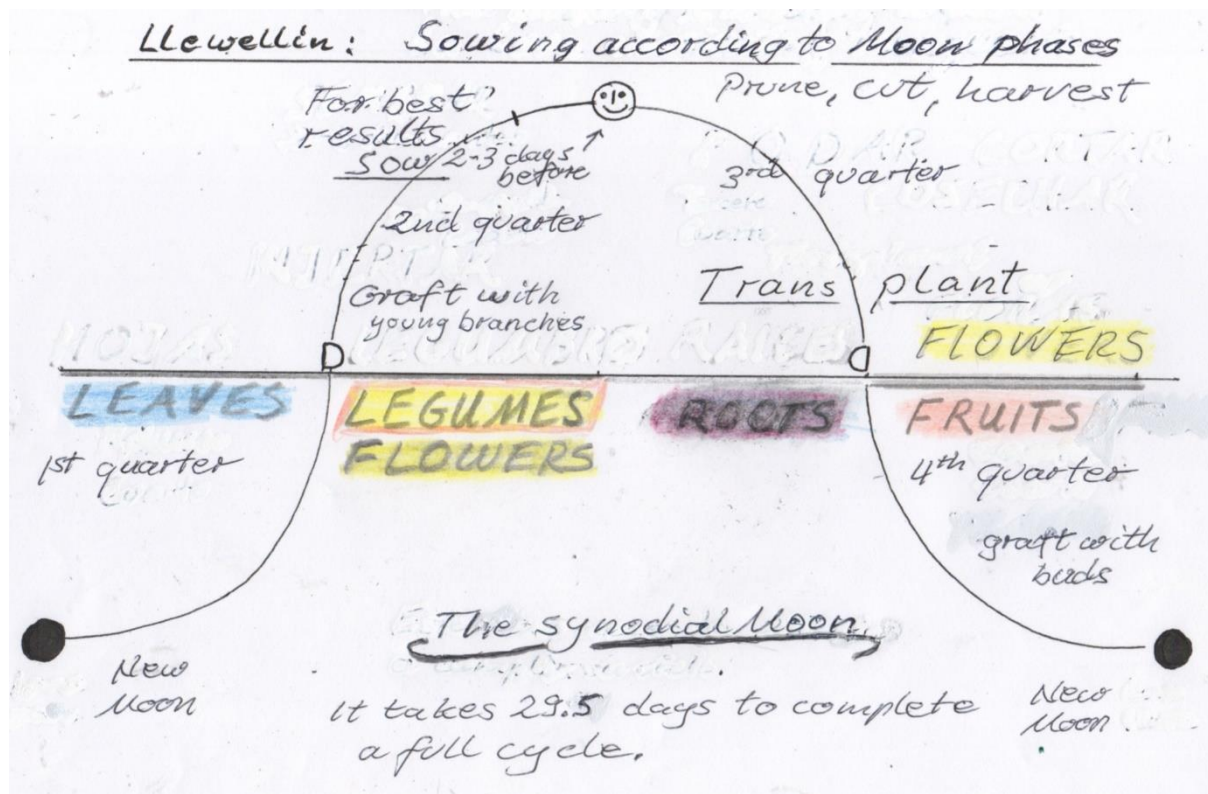 Llewellin: Sowing according to Moon phases
For best
results
sow 2-3 days
before
Prune, cut, harvest
3rd quarter
2nd quarter
Graft with
young branches
Trans plant
FLOWERS
LEAVES
LEGUMES
FLOWERS
ROOTS
FRUITS
1st quarter
4th quarter
graft with
buds
New
Moon
The synodial Moon.
It takes 29.5 days to complete
a full cycle.
New
Moon